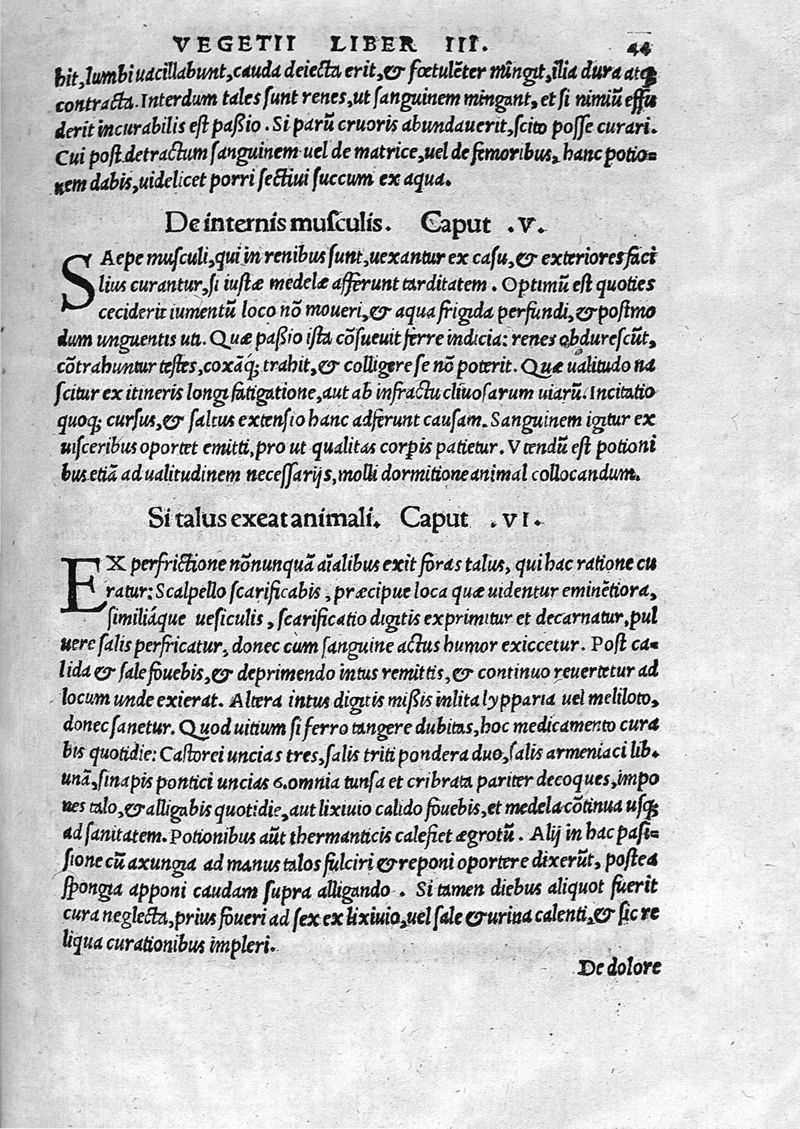 VEGETII LIBER III. 44
bit, lumbi uacillabunt, cauda deiecta erit, & fœtulẽter mĩngit, ilia dura atq;
contracta. Interdum tales sunt renes, ut sanguinem mingant, et si nimiũ effu
derit incurabilis est paßio. Si parũ cruoris abundauerit, scito posse curari.
Cui post detractum sanguinem uel de matrice, uel de femoribus, hanc potio-
nem dabis, uidelicet porri sectiui succum ex aqua.
De internis musculis. Caput .V.
SAepe musculi, qui in renibus sunt, uexantur ex casu, & exteriores faci
lius curantur, si iustæ medelæ afferunt tarditatem. Optimũ est quoties
ceciderit iumentũ loco nõ moueri, & aqua frigida perfundi, & postmo
dum unguentis uti. Quæ paßio ista cõsueuit ferre indicia: renes obdurescũt,
cõtrahuntur testes, coxáq; trahit, & colligere se nõ poterit. Quæ ualitudo na
scitur ex itineris longi fatigatione, aut ab infractu cliuosarum uiarũ. Incitatio
quoq; cursus, & saltus extensio hanc adferunt causam. Sanguinem igitur ex
uisceribus oportet emitti, pro ut qualitas corpis patietur. Vtendũ est potioni
bus etiã ad ualitudinem necessarijs, molli dormitione animal collocandum.
Si talus exeat animali. Caput .VI.
EX perfrictione nõnunquã aĩalibus exit foras talus, qui hac ratione cu
ratur: Scalpello scarificabis, præcipue loca quæ uidentur eminẽtiora,
similiáque uesiculis, scarificatio digitis exprimitur et decarnatur, pul
uere salis perfricatur, donec cum sanguine actus humor exiccetur. Post ca-
lida & sale fouebis, & deprimendo intus remittis, & continuo reuertetur ad
locum unde exierat. Altera intus digitis mißis inlita lypparia uel meliloto,
donec sanetur. Quod uitium si ferro tangere dubitas, hoc medicamento cura
bis quotidie: Castorei uncias tres, salis triti pondera duo, salis armeniaci lib.
unã, sinapis pontici uncias 6. omnia tunsa et cribrata pariter decoques, impo
nes talo, & alligabis quotidie, aut lixiuio calido fouebis, et medela cõtinua usq;
ad sanitatem. Potionibus aũt thermanticis calefiet ægrotũ. Alij in hac pas-
sione cũ axungia ad manus talos fulciri & reponi oportere dixerũt, postea
spongia apponi caudam supra alligando. Si tamen diebus aliquot fuerit
cura neglecta, prius foueri ad sex ex lixiuio, uel sale & urina calenti, & sic re
liqua curationibus impleri.
De dolore